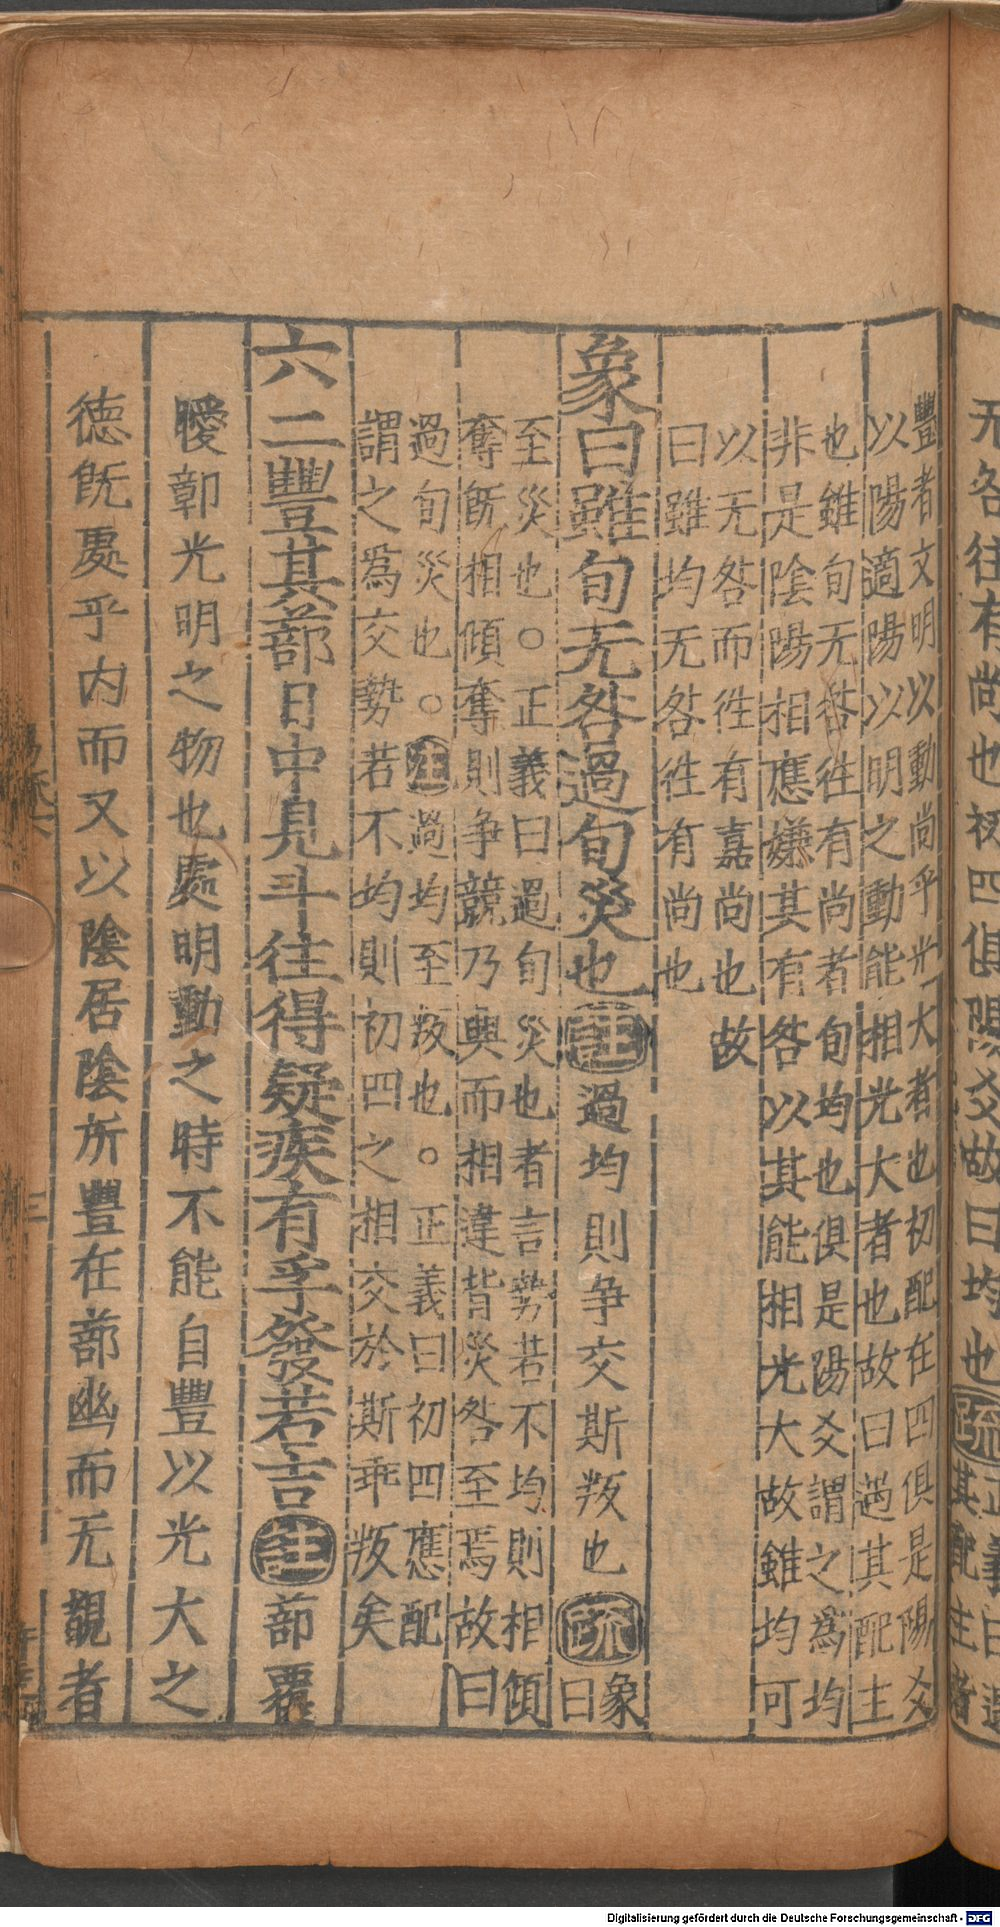 无咎往有尚也初四俱陽爻故曰均也疏
正義曰遇
其配主者
豐者文明以動尚乎光大者也初配在四俱是陽爻
以陽適陽以明之動能相光大者也故曰遇其配主
也雖旬无咎徃有尚者旬均也俱是陽爻謂之爲均
非是陰陽相應嫌其有咎以其能相光大故雖均可
以无咎而徃有嘉尚也故
曰雖均无咎徃有尚也
象曰雖旬无咎過旬災也注過均則争交斯叛也疏象
曰
至災也○正義曰過旬災也者言勢若不均則相傾
奪旣相傾奪則争競乃興而相違背災咎至焉故曰
過旬災也○注過均至叛也○正義曰初四應配
謂之爲交勢若不均則初四之相交於斯乖叛矣
六二豐其蔀日中見斗往得疑疾有孚發若吉注蔀覆
曖鄣光明之物也處明動之時不能自豐以光大之
德旣處乎内而又以陰居陰所豐在蔀幽而无覩者
Digitalisierung gefördert durch die Deutsche Forschungsgemeinschaft - DFG